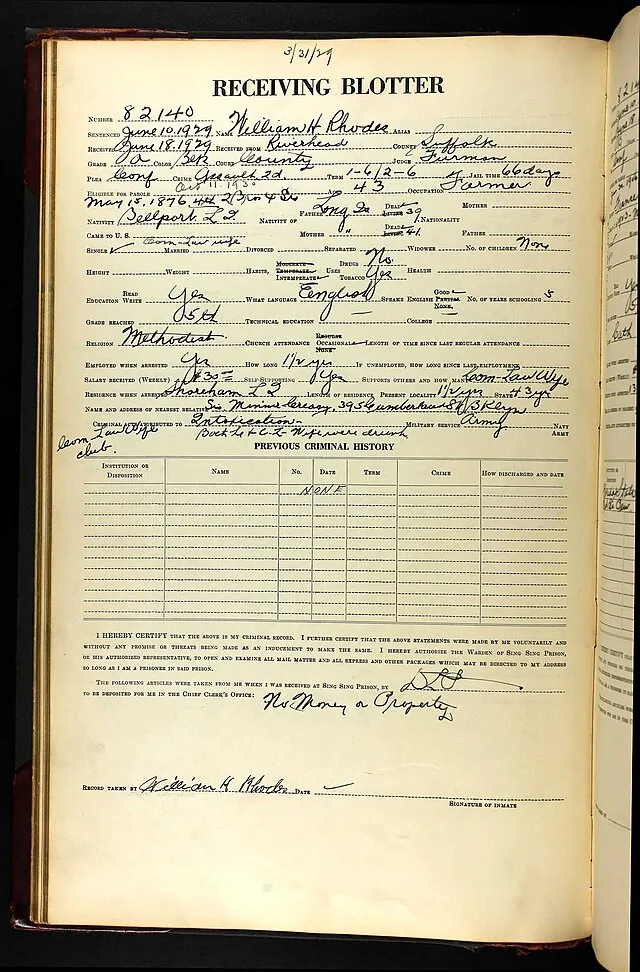 3/31/29
RECEIVING BLOTTER
NUMBER 82140
SENTENCED June 10, 1929 NAME William H Rhodes ALIAS
RECEIVED June 18, 1929 RECEIVED FROM Riverhead COUNTY Suffolk
GRADE A COLOR Blk COURT County JUDGE Furman
PLEA Conf CRIME Assault 2d. TERM 1-6/2-6 JAIL TIME 66 days
ELIGIBLE FOR PAROLE Oct 11. 1930 43 OCCUPATION Farmer
May 15, 1876
NATIVITY Bellport L I NATIVITY OF FATHER Long Is DEAD 39 NATIONALITY MOTHER
CAME TO U. S. MOTHER " DEAD 41. FATHER
SINGLE ✓ Com-Law wife MARRIED DIVORCED SEPARATED WIDOWER NO. OF CHILDREN None
HEIGHT WEIGHT HABITS, MODERATE TEMPERATE INTEMPERATE USES DRUGS No. TOBACCO Yes HEALTH
EDUCATION READ WRITE Yes WHAT LANGUAGE English SPEAKS ENGLISH GOOD PARTIAL NONE. NO. OF YEARS SCHOOLING 5
GRADE REACHED 5th TECHNICAL EDUCATION — COLLEGE —
RELIGION Methodist CHURCH ATTENDANCE REGULAR OCCASIONAL NONE LENGTH OF TIME SINCE LAST REGULAR ATTENDANCE
EMPLOYED WHEN ARRESTED Yes HOW LONG 1½ yrs IF UNEMPLOYED, HOW LONG SINCE LAST EMPLOYMENT
SALARY RECEIVED (WEEKLY) $30 00 SELF-SUPPORTING Yes SUPPORTS OTHERS AND HOW MANY Com-Law Wife
RESIDENCE WHEN ARRESTED Shoreham L I LENGTH OF RESIDENCE, PRESENT LOCALITY 1½ yrs STATE 43 yrs
NAME AND ADDRESS OF NEAREST RELATIVE Sis. Minnie 395 Cumberland St, BKlyn
CRIMINAL ACT ATTRIBUTED TO Intoxication- MILITARY SERVICE Army NAVY ARMY
Com Law Wife Both he & C-L-Wife were drunk
club.
PREVIOUS CRIMINAL HISTORY
INSTITUTION OR DISPOSITION NAME NO. DATE TERM CRIME HOW DISCHARGED AND DATE
NONE
I HEREBY CERTIFY THAT THE ABOVE IS MY CRIMINAL RECORD. I FURTHER CERTIFY THAT THE ABOVE STATEMENTS WERE MADE BY ME VOLUNTARILY AND
WITHOUT ANY PROMISE OR THREATS BEING MADE AS AN INDUCEMENT TO MAKE THE SAME. I HEREBY AUTHORIZE THE WARDEN OF SING SING PRISON,
OR HIS AUTHORIZED REPRESENTATIVE, TO OPEN AND EXAMINE ALL MAIL MATTER AND ALL EXPRESS AND OTHER PACKAGES WHICH MAY BE DIRECTED TO MY ADDRESS
SO LONG AS I AM A PRISONER IN SAID PRISON.
THE FOLLOWING ARTICLES WERE TAKEN FROM ME WHEN I WAS RECEIVED AT SING SING PRISON, BY
TO BE DEPOSITED FOR ME IN THE CHIEF CLERK'S OFFICE: No. Money or Property
RECORD TAKEN BY William H Rhodes DATE ✓
SIGNATURE OF INMATE